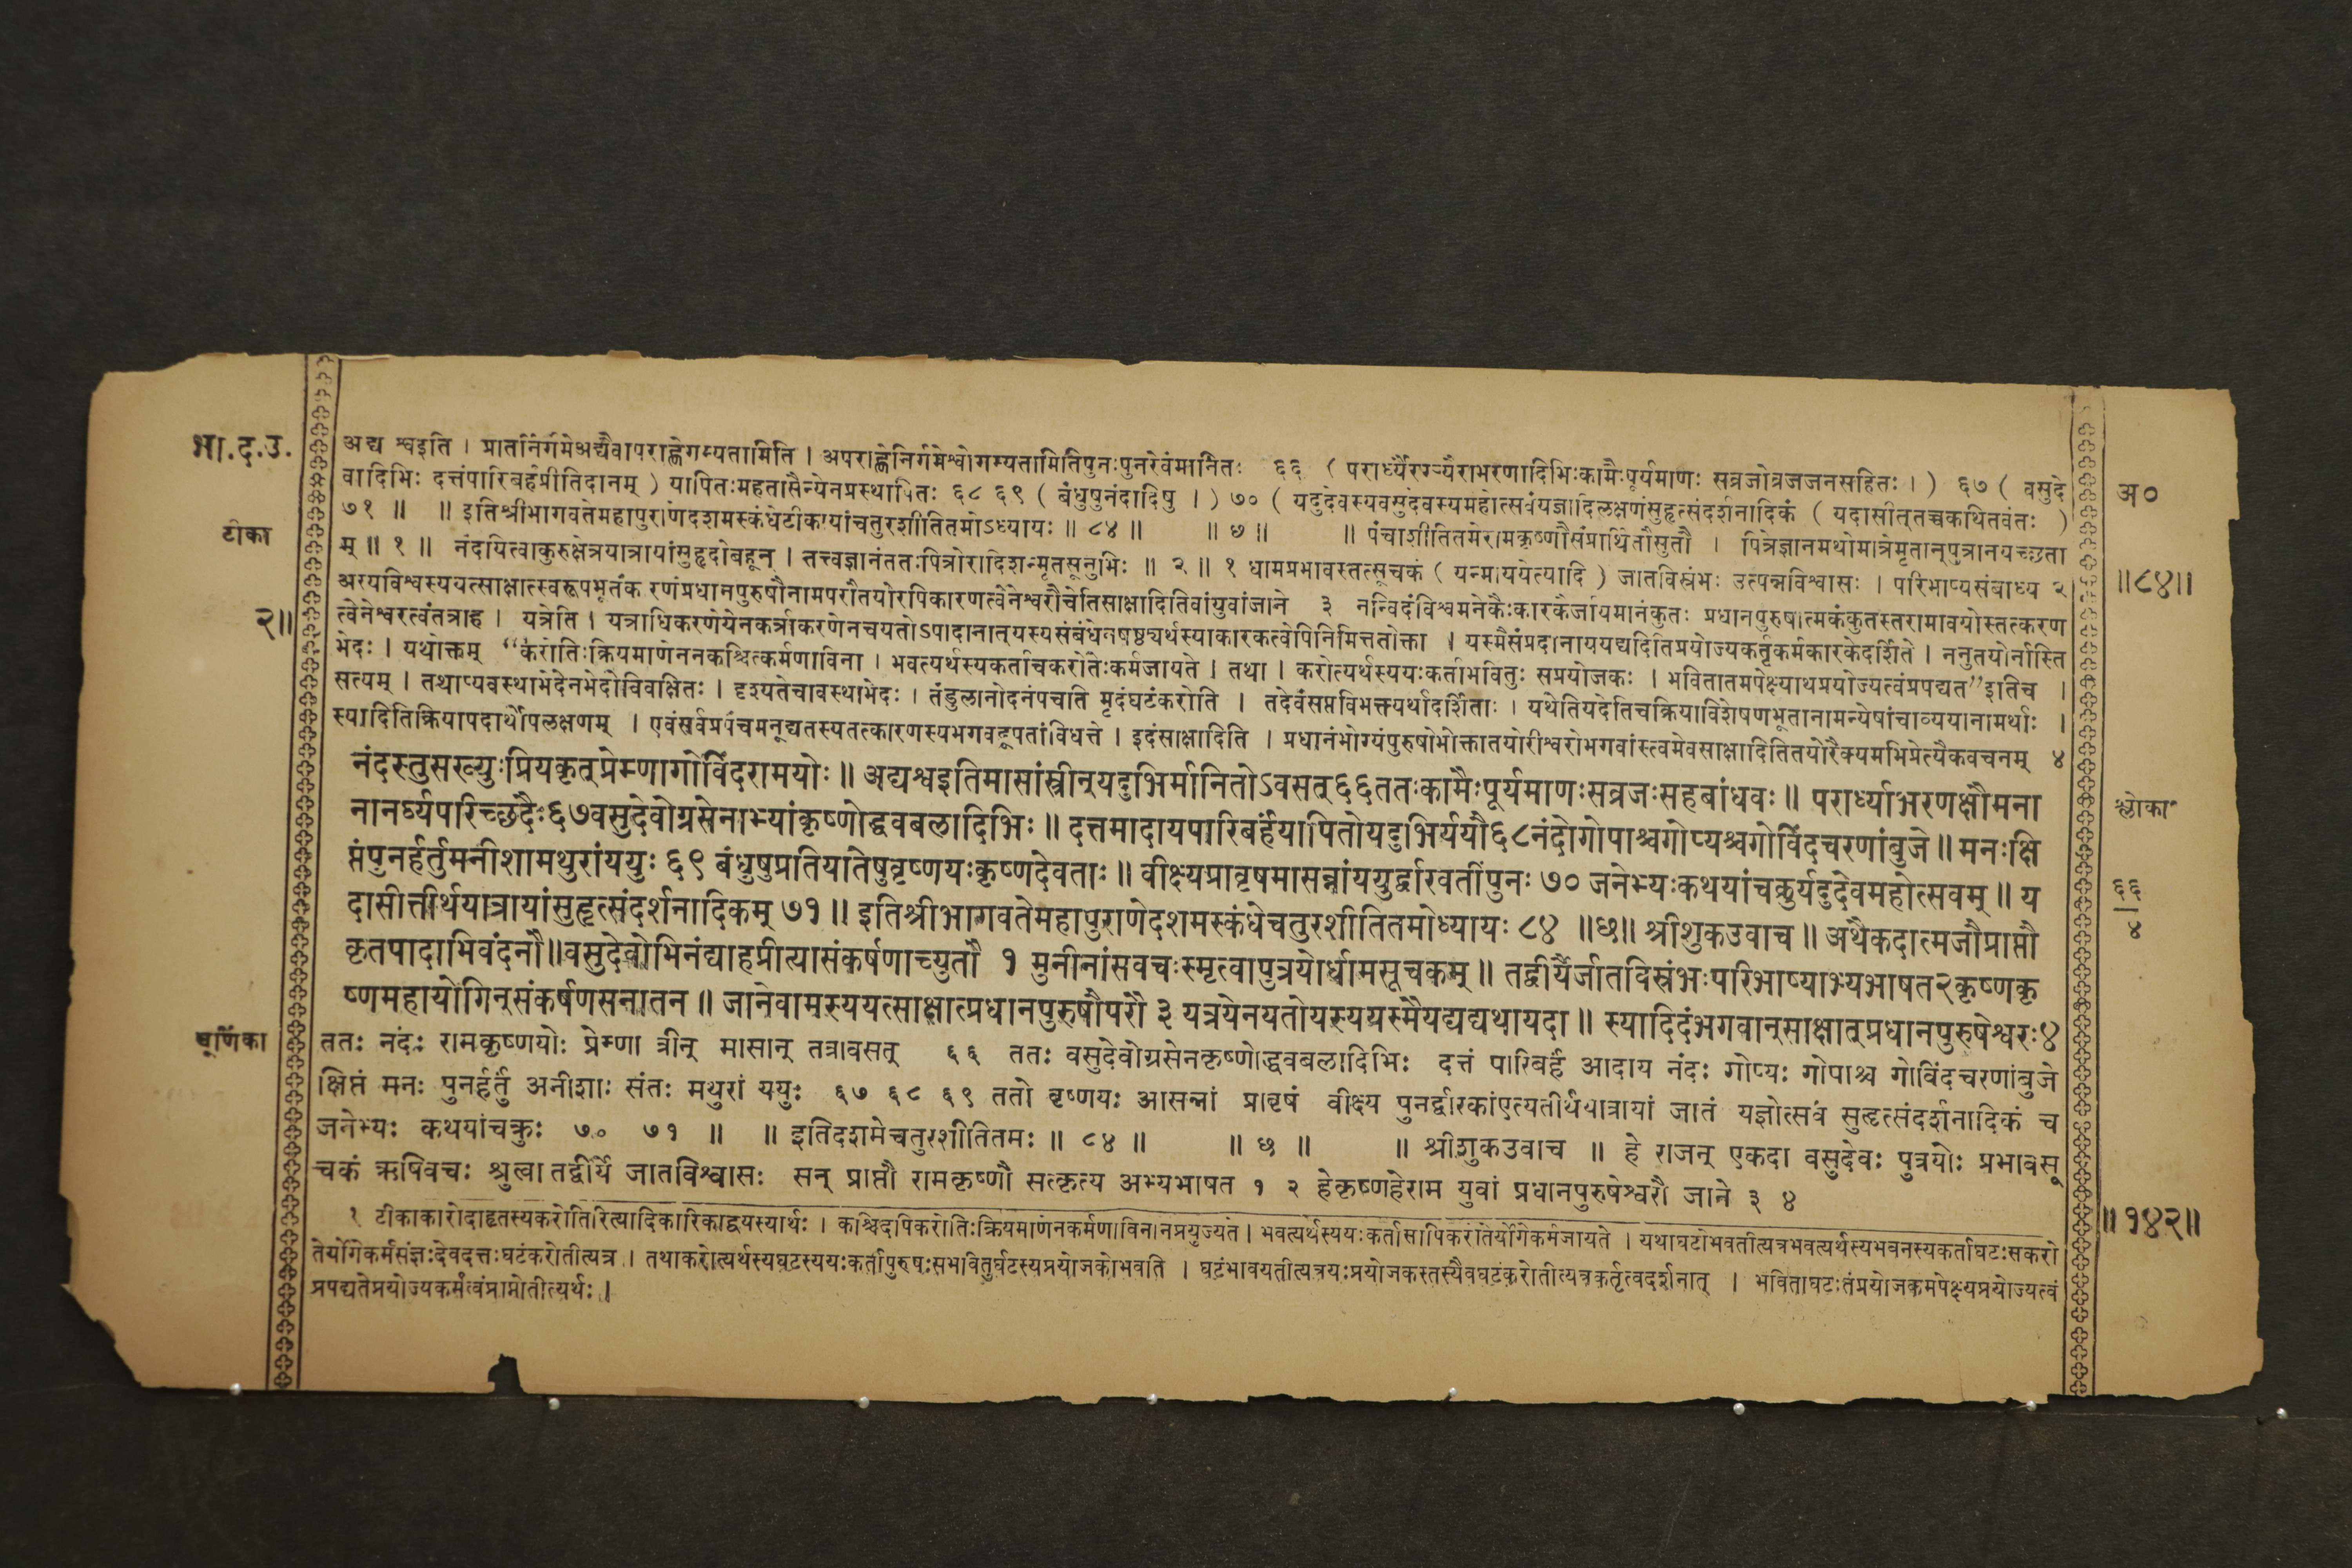 भा.द.उ.
टीका
२॥
अद्य श्वइति । प्रातर्निर्गमेअद्यैवापराह्णेगम्यतामिति । अपराह्णेनिर्गमेश्वोगम्यतामितिपुनःपुनरेवंमानितः ६६ ( परार्ध्यैरग्र्यैराभरणादिभिःकामैःपूर्यमाणः सव्रजोव्रजजनसहितः । ) ६७ ( वसुदे
वादिभिः दत्तंपारिबर्हंप्रीतिदानम् ) यापितःमहतासैन्येनप्रस्थापितः ६८ ६९ ( बंधुषुनंदादिषु । ) ७० ( यदुदेवस्यवसुदेवस्यमहोत्सवंयज्ञादिलक्षणंसुहृत्संदर्शनादिकं ( यदासीत्तच्चकथितवंतः )
७१ ॥ ॥ इतिश्रीभागवतेमहापुराणेदशमस्कंधेटीकायांचतुरशीतितमोऽध्यायः ॥ ८४ ॥ ॥ छ ॥ ॥ पंचाशीतितमेरामकृष्णौसंप्रार्थितौसुतौ । पित्रेज्ञानमथोमात्रेमृतान्पुत्रानयच्छता
म् ॥ १ ॥ नंदयित्वाकुरुक्षेत्रयात्रायांसुहृदोबहून् । तत्त्वज्ञानंततःपित्रोरादिशन्मृतसूनुभिः ॥ २ ॥ १ धामप्रभावस्तत्सूचकं ( यन्माययेत्यादि ) जातविस्रंभः उत्पन्नविश्वासः । परिभाष्यसंबाध्य २
अस्यविश्वस्ययत्साक्षात्स्वरूपभूतंक रणंप्रधानपुरुषौनामपरौतयोरपिकारणत्वेनेश्वरौचेतिसाक्षादितिवांयुवांजाने ३ नन्विदंविश्वमनेकैःकारकैर्जायमानंकुतः प्रधानपुरुषात्मकंकुतस्तरामावयोस्तत्करण
त्वेनेश्वरत्वंतत्राह । यत्रेति । यत्राधिकरणेयेनकर्त्राकरणेनचयतोऽपादानात्यस्यसंबंधेनषष्ठ्यर्थस्याकारकत्वेपिनिमित्ततोक्ता । यस्मैसंप्रदानाययद्यदितिप्रयोज्यकर्तृकर्मकारकेदर्शिते । ननुतयोर्नास्ति
भेदः । यथोक्तम् “करोतिःक्रियमाणेननकश्चित्कर्मणाविना । भवत्यर्थस्यकर्ताचकरोतेःकर्मजायते । तथा । करोत्यर्थस्ययःकर्ताभवितुः सप्रयोजकः । भवितातमपेक्ष्याथप्रयोज्यत्वंप्रपद्यत”इतिच ।
सत्यम् । तथाप्यवस्थाभेदेनभेदोविवक्षितः । दृश्यतेचावस्थाभेदः । तंडुलानोदनंपचति मृदंघटंकरोति । तदेवंसप्तविभक्त्यर्थादर्शिताः । यथेतियदेतिचक्रियाविशेषणभूतानामन्येषांचाव्ययानामर्थाः ।
स्यादितिक्रियापदार्थोपलक्षणम् । एवंसर्वप्रपंचमनूद्यतस्यतत्कारणस्यभगवद्रूपतांविधत्ते । इदंसाक्षादिति । प्रधानंभोग्यंपुरुषोभोक्तातयोरीश्वरोभगवांस्त्वमेवसाक्षादितितयोरैक्यमभिप्रेत्यैकवचनम् ४
नंदस्तुसख्युःप्रियकृत्प्रेम्णागोविंदरामयोः ॥ अद्यश्वइतिमासांस्त्रीन्यदुभिर्मानितोऽवसत्६६ततःकामैःपूर्यमाणःसव्रजःसहबांधवः ॥ परार्ध्याभरणक्षौमना
नानर्घ्यपरिच्छदैः६७वसुदेवोग्रसेनाभ्यांकृष्णोद्धवबलादिभिः ॥ दत्तमादायपारिबर्हंयापितोयदुभिर्ययौ६८नंदोगोपाश्चगोप्यश्चगोविंदचरणांबुजे ॥ मनःक्षि
प्तंपुनर्हर्तुमनीशामथुरांययुः ६९ बंधुषुप्रतियातेषुवृष्णयःकृष्णदेवताः ॥ वीक्ष्यप्रावृषमासन्नांययुर्द्वारवतींपुनः ७० जनेभ्यःकथयांचक्रुर्यदुदेवमहोत्सवम् ॥ य
दासीत्तीर्थयात्रायांसुहृत्संदर्शनादिकम् ७१ ॥ इतिश्रीभागवतेमहापुराणेदशमस्कंधेचतुरशीतितमोध्यायः ८४ ॥छ॥ श्रीशुकउवाच ॥ अथैकदात्मजौप्राप्तौ
कृतपादाभिवंदनौ॥वसुदेवोभिनंद्याहप्रीत्यासंकर्षणाच्युतौ १ मुनीनांसवचःस्मृत्वापुत्रयोर्धामसूचकम् ॥ तद्वीर्यैर्जातविस्रंभःपरिभाष्याभ्यभाषत२कृष्णकृ
ष्णमहायोगिन्संकर्षणसनातन ॥ जानेवामस्ययत्साक्षात्प्रधानपुरुषौपरौ ३ यत्रयेनयतोयस्ययस्मैयद्यद्यथायदा ॥ स्यादिदंभगवान्साक्षात्प्रधानपुरुषेश्वरः४
चूर्णिका
ततः नंदः रामकृष्णयोः प्रेम्णा त्रीन् मासान् तत्रावसत् ६६ ततः वसुदेवोग्रसेनकृष्णोद्धवबलादिभिः दत्तं पारिबर्हं आदाय नंदः गोप्यः गोपाश्च गोविंदचरणांबुजे
क्षिप्तं मनः पुनर्हर्तुं अनीशाः संतः मथुरां ययुः ६७ ६८ ६९ ततो वृष्णयः आसन्नां प्रावृषं वीक्ष्य पुनर्द्वारकांएत्यतीर्थयात्रायां जातं यज्ञोत्सवं सुहृत्संदर्शनादिकं च
जनेभ्यः कथयांचक्रुः ७० ७१ ॥ ॥ इतिदशमेचतुरशीतितमः ॥ ८४ ॥ ॥ छ ॥ ॥ श्रीशुकउवाच ॥ हे राजन् एकदा वसुदेवः पुत्रयोः प्रभावसू
चकं ऋषिवचः श्रुत्वा तद्वीर्ये जातविश्वासः सन् प्राप्तौ रामकृष्णौ सत्कृत्य अभ्यभाषत १ २ हेकृष्णहेराम युवां प्रधानपुरुषेश्वरौ जाने ३ ४
१ टीकाकारोदाहृतस्यकरोतिरित्यादिकारिकाद्वयस्यार्थः । कश्चिदपिकरोतिःक्रियमाणेनकर्मणाविनानप्रयुज्यते । भवत्यर्थस्ययःकर्तासापिकरोतेर्योगेकर्मजायते । यथाघटोभवतीत्यत्रभवत्यर्थस्यभवनस्यकर्ताघटःसकरो
तेर्योगेकर्मसंज्ञःदेवदत्तःघटंकरोतीत्यत्र । तथाकरोत्यर्थस्यघटस्ययःकर्तापुरुषःसभवितुर्घटस्यप्रयोजकोभवति । घटंभावयतीत्यत्रयःप्रयोजकस्तस्यैवघटंकरोतीत्यत्रकर्तृत्वदर्शनात् । भविताघटःतंप्रयोजकमपेक्ष्यप्रयोज्यत्वं
प्रपद्यतेप्रयोज्यकर्मत्वंप्राप्नोतीत्यर्थः ।
अ०
॥८४॥
श्लोकाः
६६
४
॥१४२॥